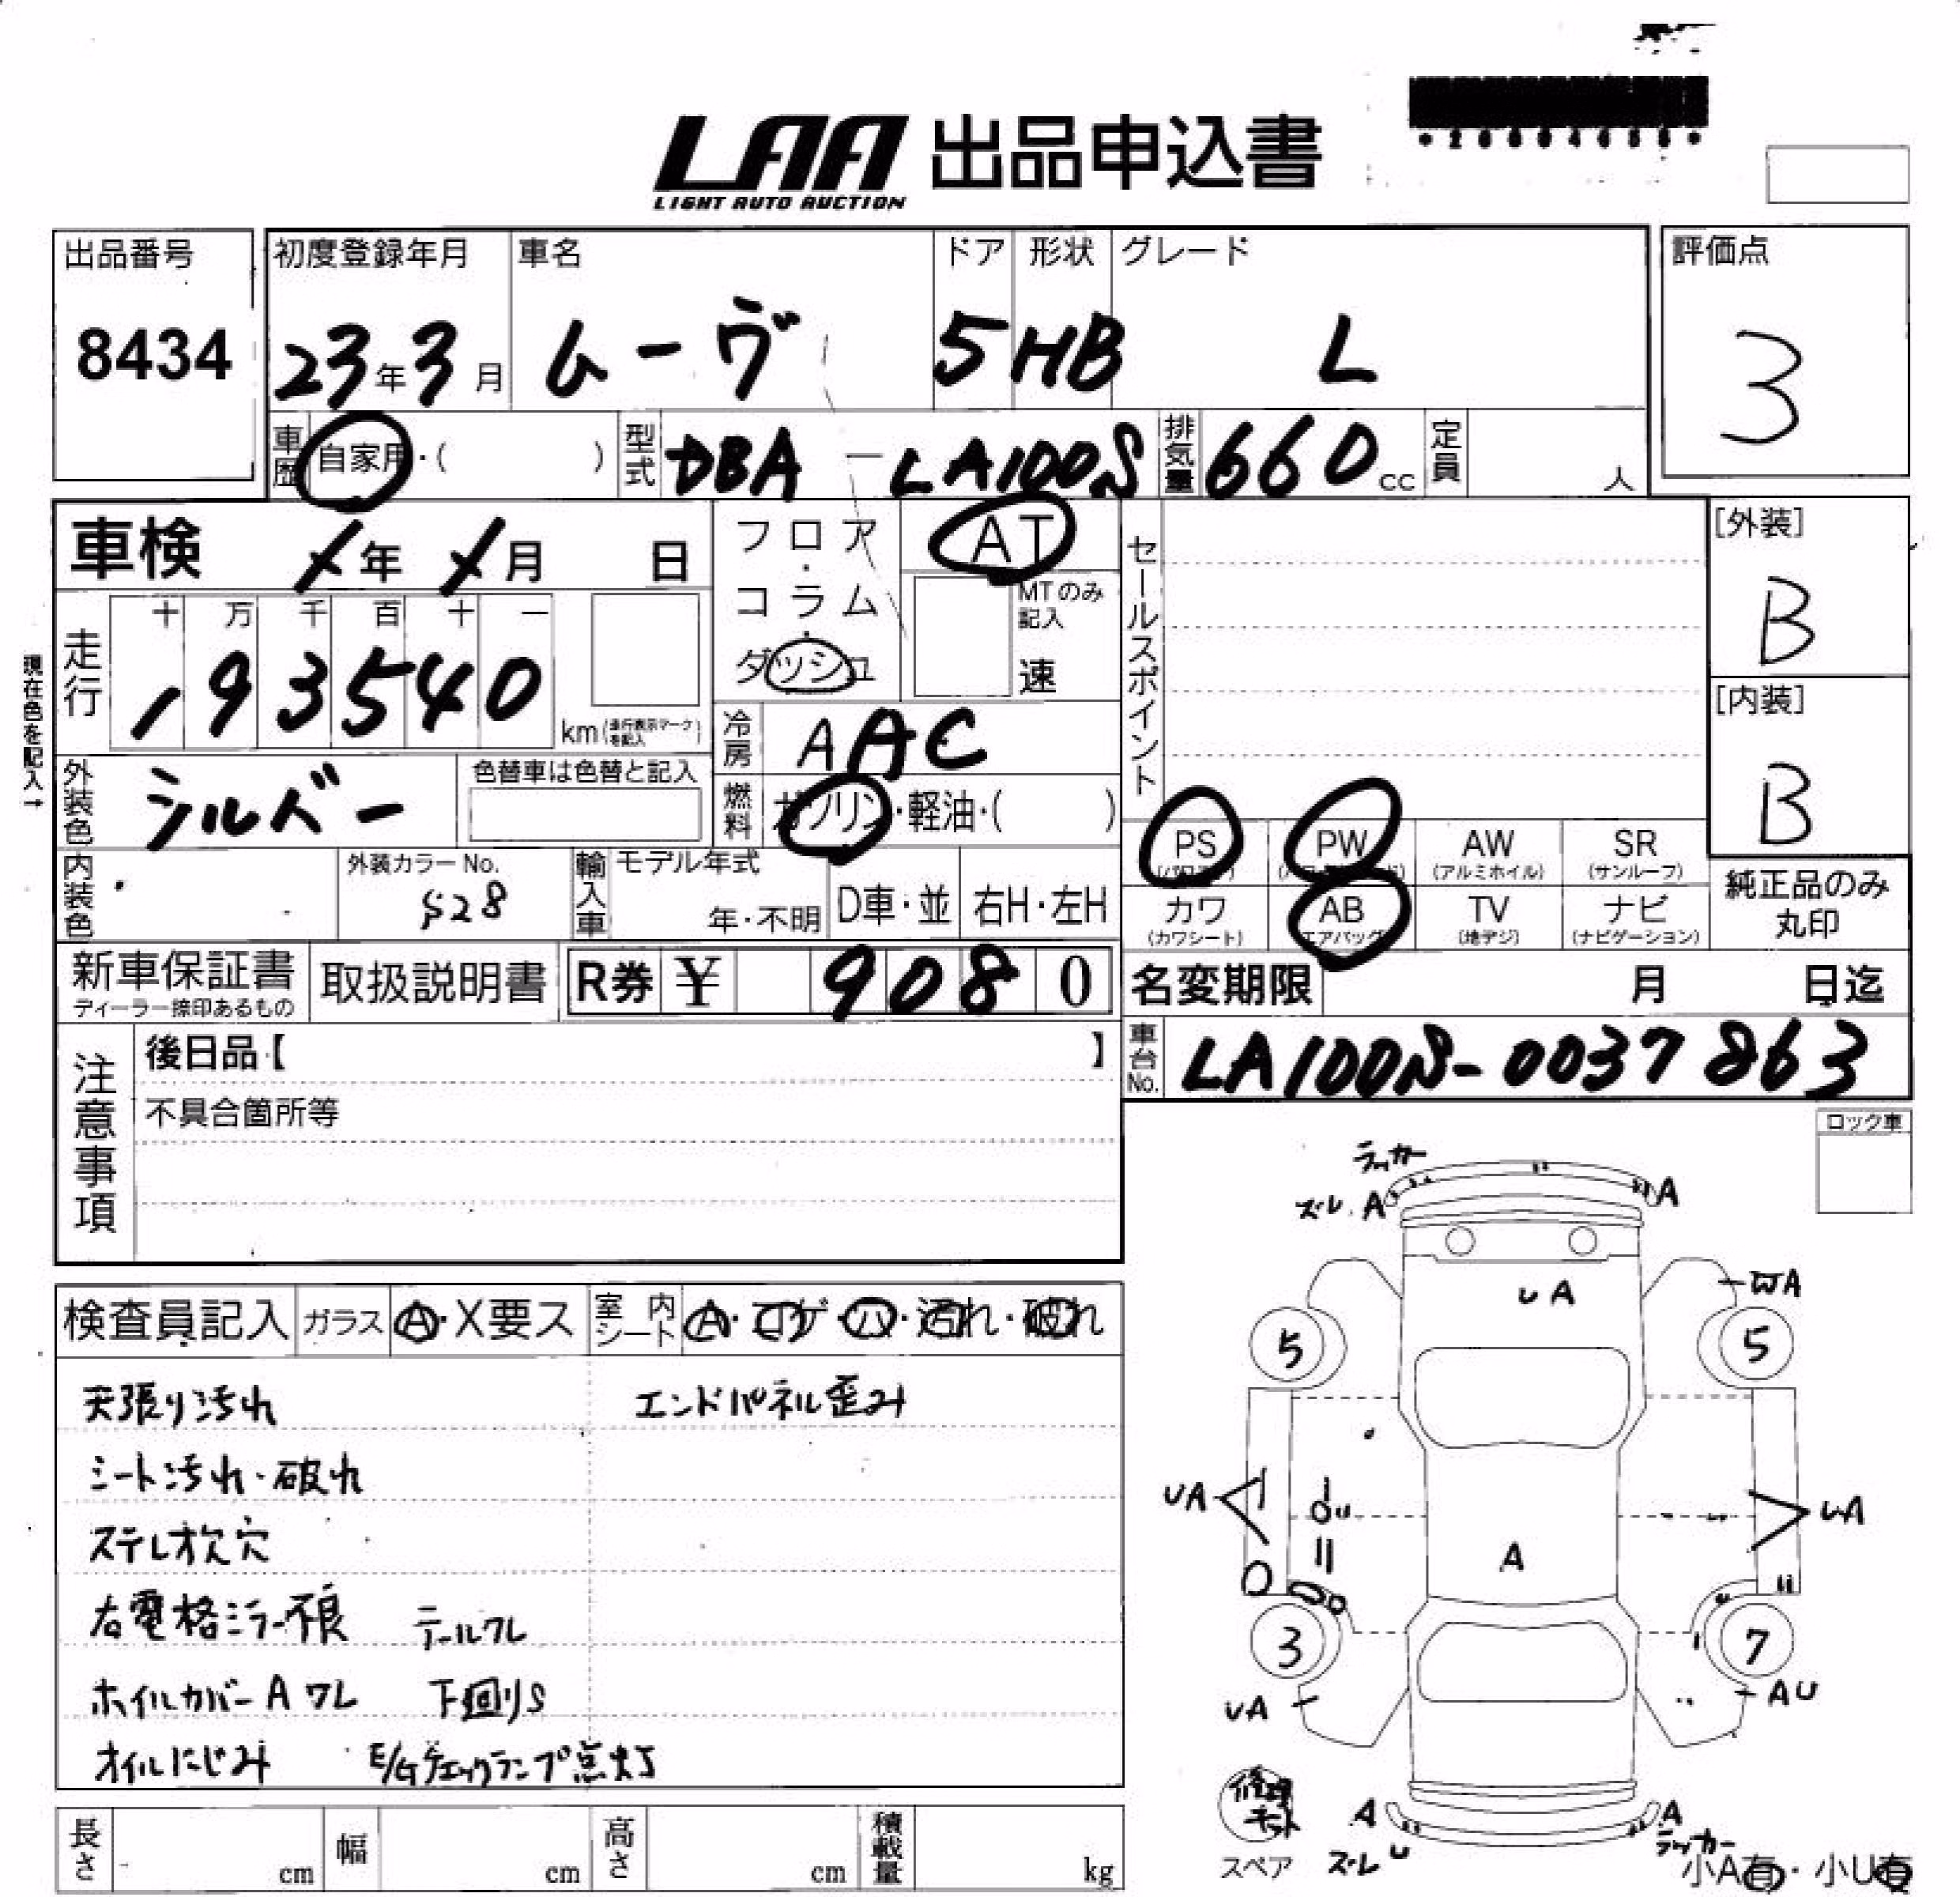 LAA 出品申込書
LIGHT AUTO AUCTION
出品番号
8434
初度登録年月
23年3月
車名
ムーヴ
ドア
5
形状
HB
グレード
L
評価点
3
車歴 自家用・( )
型式 DBA-LA100S
排気量 660cc
定員 人
車検 年 月 日
フロア・コラム・ダッシュ
AT
MTのみ記入
速
セールスポイント
[外装]
B
[内装]
B
現在色を記入→
走行
十 万 千 百 十 一
193540
km(走行表示マークを記入)
冷房 AAC
外装色 シルバー
色替車は色替と記入
燃料 ガソリン・軽油・( )
内装色
外装カラーNo.
S28
輸入車
モデル年式
年・不明
D車・並
右H・左H
PS
PW
AW (アルミホイル)
SR (サンルーフ)
カワ (カワシート)
AB (エアバッグ)
TV (地デジ)
ナビ (ナビゲーション)
純正品のみ丸印
新車保証書
ディーラー捺印あるもの
取扱説明書
R券 ¥ 9080
名変期限 月 日迄
車台No. LA100S-0037863
注意事項
後日品【 】
不具合箇所等
ロック車
検査員記入 ガラス A・X要ス 室内シート A・コゲ・ハ・汚れ・破れ
天張り汚れ エンドパネル歪み
シート汚れ・破れ
ステレオ欠穴
右電格ミラー不良 テールワレ
ホイルカバーAワレ 下廻りS
オイルにじみ E/Gチェックランプ点灯
ラッカー
ズレ A
A
UA
WA
5
5
UA
UA
A
3
7
UA
AU
修理キット
スペア
A
ズレ U
A
ラッカー
小A有・小U有
長さ cm
幅 cm
高さ cm
積載量 kg